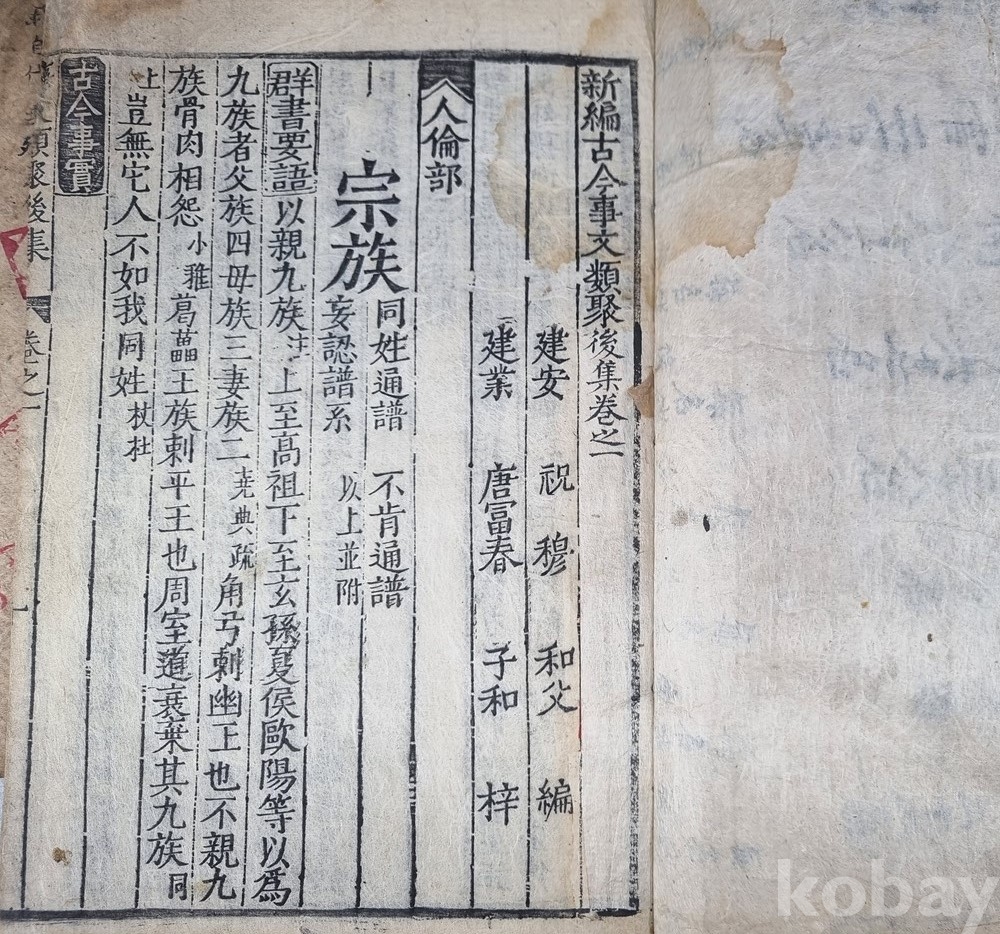 新編古今事文類聚後集卷之一
建安 祝穆 和父 編
建業 唐富春 子和 梓
人倫部
宗族 同姓通譜 不肯通譜
妄認譜系 以上並附
群書要語 以親九族 注 上至高祖下至玄孫夏侯歐陽等以爲
九族者父族四母族三妻族二 尭典疏 角弓刺幽王也不親九
族骨肉相怨 小雅 葛藟王族刺平王也周室道衰棄其九族 同
上 豈無它人不如我同姓 杕杜
古今事實
類聚後集
卷之一
kobay